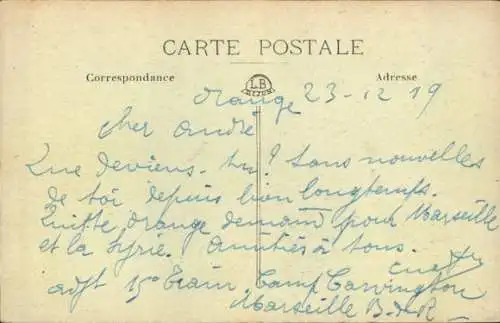 CARTE POSTALE
Correspondance
LB
DIJON
Adresse
Orange 23-12 19
Cher André
Que deviens-tu? Sans nouvelles
de toi depuis bien longtemps.
Quitte Orange demain pour Marseille
et la Syrie. Amitiés à tous.
adjt 15e Train Camp Carvington
Marseille B-d-R